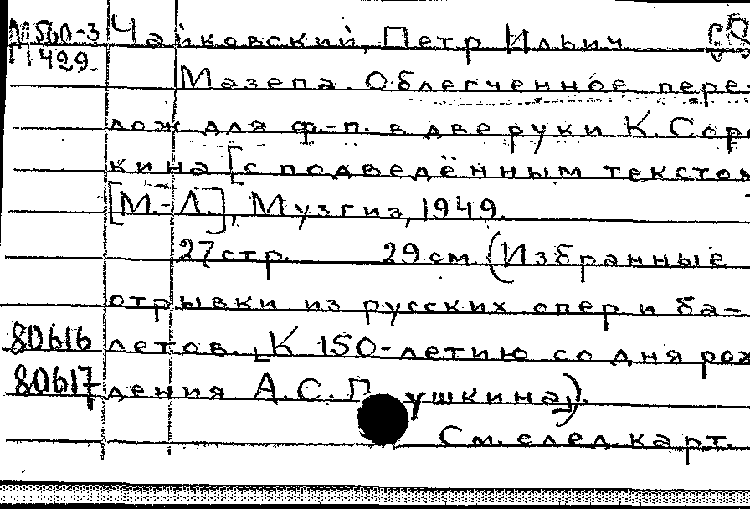 М 560-3 Чайковский, Петр Ильич
429. Мазепа. Облегченное пере-
лож для ф-п. в две руки К. Соро
кина [с подведённым тексто
[М.-Л.], Музгиз, 1949.
27 стр. 29 см. (Избранные
отрывки из русских опер и ба-
80616 летов. К 150-летию со дня рож
80617 дения А.С.Пушкина).
См. след. карт.